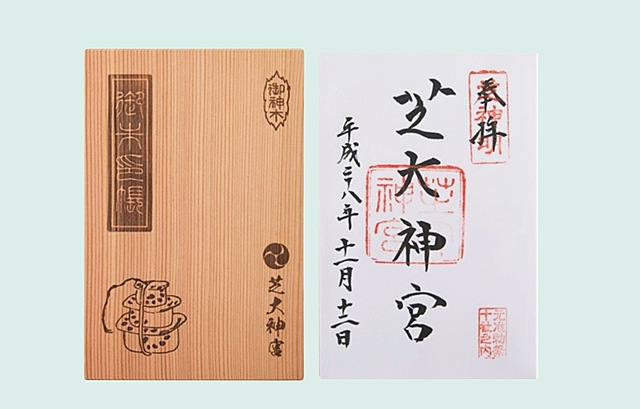 御神木
御朱印帳
芝大神宮
奉拝
芝大神宮
芝大神宮
平成二八年十一月十二日
元准勅祭
十社之内